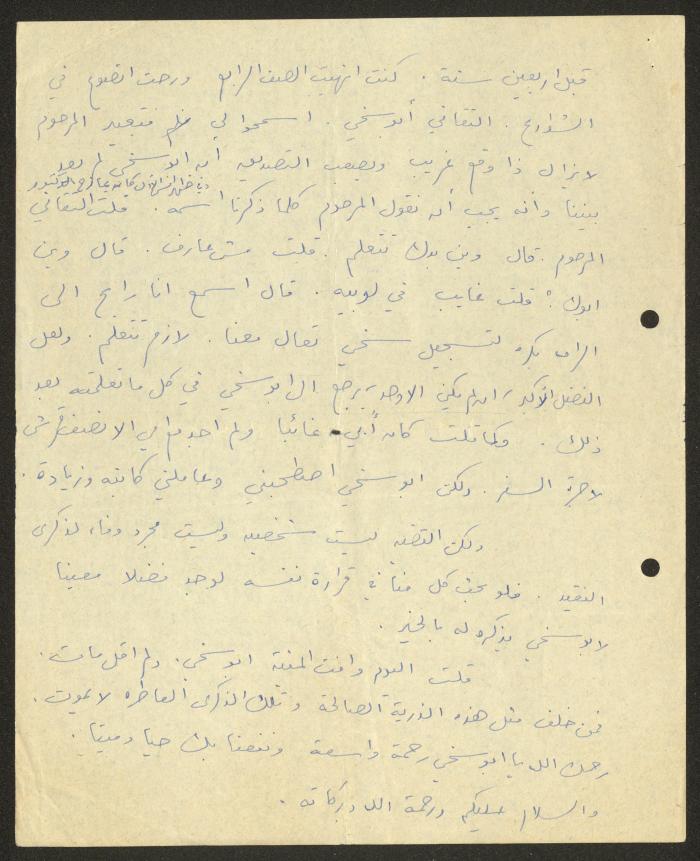 قبل اربعين سنة . كنت انهيت الصف الرابع ورحت اتضوع في
الشوارع . التقاني أبو سخي . اسمحوا لي فتعبير المرحوم
لا يزال ذا وقع غريب ويصعب التصديق أن ابو سخي لم يعد
بيننا وأنه يجب أن نقول المرحوم كلما ذكرنا اسمه . قلت التقاني
المرحوم . قال وين بدك تتعلم . قلت مش عارف . قال وين
ابوك ؟ قلت غايب في لوبيه . قال اسمع انا رايح الى
بكره لتسجيل سخي تعال معنا . لازم تتعلم . ولعل
الفضل الأكبر ، ان لم يكن الاوحد ، يرجع الى ابو سخي في كل ما تعلمته بعد
ذلك . وكما قلت كان أبي غائبا ولم اجد مع امي الا نصف قرش
لاجرة السفر . ولكن ابو سخي اصطحبني وعاملني كابنه وزيادة .
ولكن القضيه ليست شخصيه وليست مجرد وفاء لذكرى
الفقيد . فلو بحث كل منا في قرارة نفسه لوجد فضلا معينا
لابو سخي يذكره له بالخير .
قلت اليوم وافت المنية ابو سخي . ولم اقل مات .
فمن خلف مثل هذه الذرية الصالحة وتلك الذكرى العاطره لا يموت .
رحمك الله يا ابو سخي رحمة واسعة ونفعنا بك حيا وميتا .
والسلام عليكم ورحمة الله وبركاته .